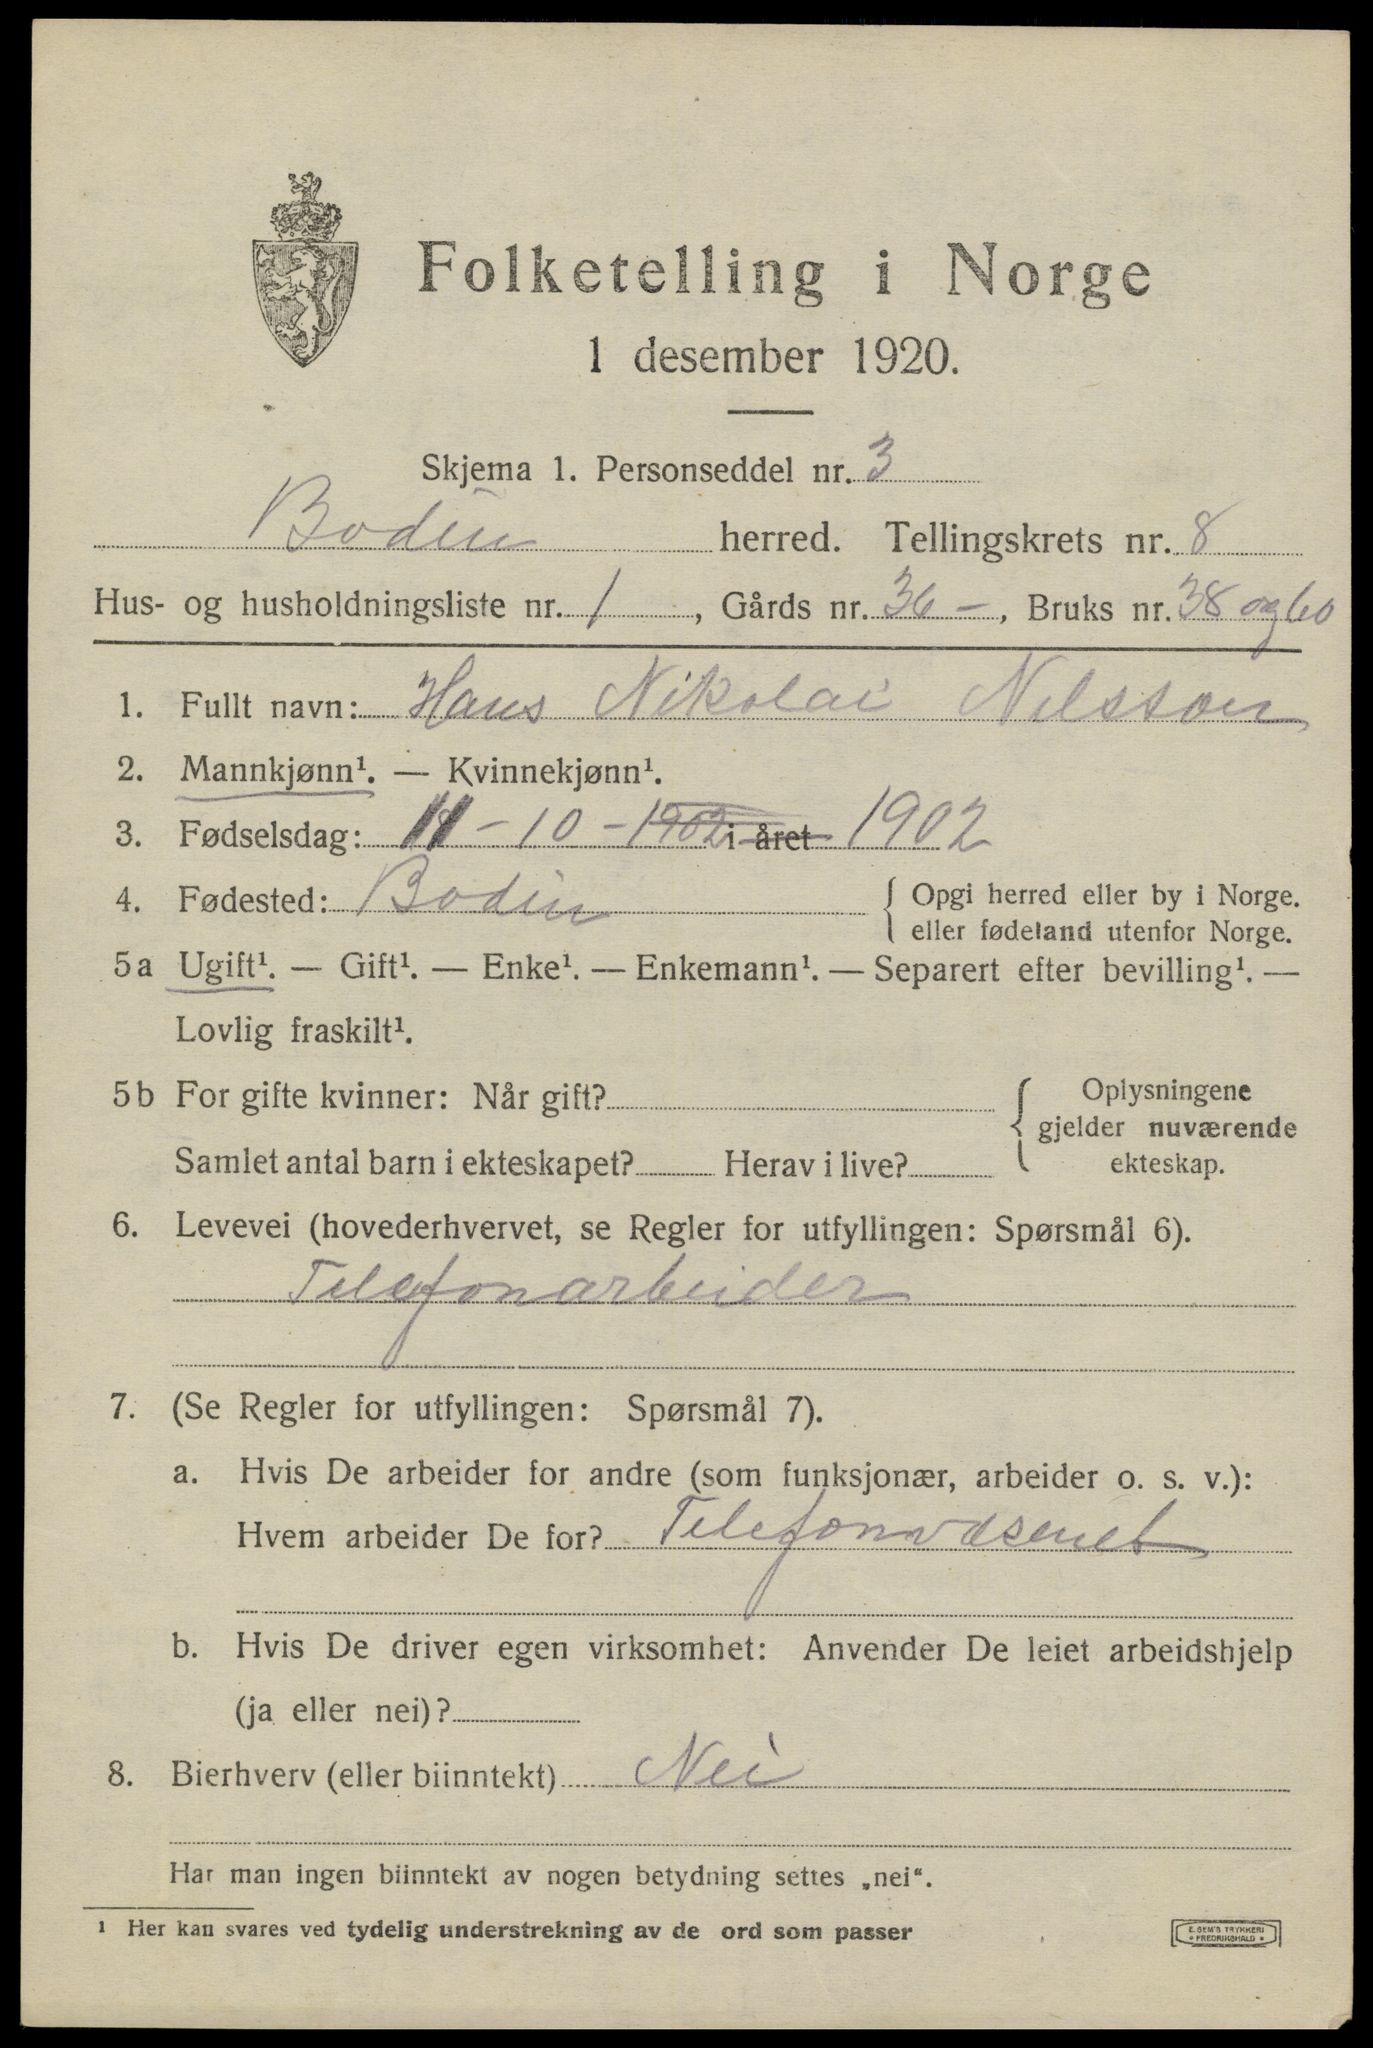 Folketelling i Norge
1 desember 1920.
Skjema 1. Personseddel nr. 3
Bodin herred. Tellingskrets nr. 8
Hus- og husholdningsliste nr. 1, Gårds nr. 36 -, Bruks nr. 38 og 60
1. Fullt navn: Hans Nikolai Nilsson
2. Mannkjønn¹. — Kvinnekjønn¹.
3. Fødselsdag: 11 - 10 - 1902 i året 1902
4. Fødested: Bodin { Opgi herred eller by i Norge.
eller fødeland utenfor Norge.
5a Ugift¹. — Gift¹. — Enke¹. — Enkemann¹. — Separert efter bevilling¹. —
Lovlig fraskilt¹.
5b For gifte kvinner: Når gift? { Oplysningene
gjelder nuværende
Samlet antal barn i ekteskapet? Herav i live? ekteskap.
6. Levevei (hovederhvervet, se Regler for utfyllingen: Spørsmål 6).
Telefonarbeider
7. (Se Regler for utfyllingen: Spørsmål 7).
a. Hvis De arbeider for andre (som funksjonær, arbeider o. s. v.):
Hvem arbeider De for? Telefonvæsenet
b. Hvis De driver egen virksomhet: Anvender De leiet arbeidshjelp
(ja eller nei)?
8. Bierhverv (eller biinntekt) Nei
Har man ingen biinntekt av nogen betydning settes „nei“.
¹ Her kan svares ved tydelig understrekning av de ord som passer
E. SEM'S TRYKKERI
• FREDRIKSHALD •